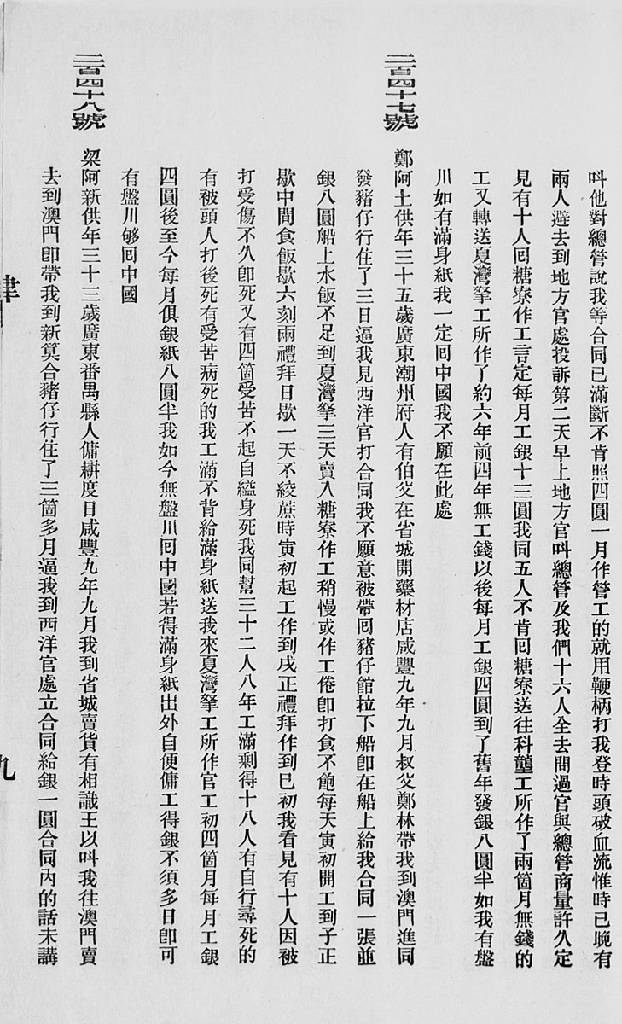 叫他對總管說我等合同已滿斷不肯照四圓一月作管工的就用鞭柄打我登時頭破血流惟時已晚有
兩人逃去到地方官處投訴第二天早上地方官叫總管及我們十六人全去問過官與總管商量許久定
見有十人回糖寮作工言定每月工銀十三圓我同五人不肯回糖寮送往科壟工所作了兩箇月無錢的
工又轉送夏灣拏工所作了約六年前四年無工錢以後每月工銀四圓到了舊年發銀八圓半如我有盤
川如有滿身紙我一定回中國我不願在此處
二百四十七號
鄭阿土供年三十五歲廣東潮州府人有伯父在省城開藥材店咸豐九年九月叔父鄭林帶我到澳門進同
發豬仔行住了三日逼我見西洋官打合同我不願意被帶回豬仔館拉下船卽在船上給我合同一張並
銀八圓船上水飯不足到夏灣拏三天賣入糖寮作工稍慢或作工倦卽打食不飽每天寅初開工到子正
歇中間食飯歇六刻兩禮拜日歇一天不絞蔗時寅初起工作到戌正禮拜作到巳初我看見有十人因被
打受傷不久卽死又有四箇受苦不起自縊身死我同幫三十二人八年工滿剩得十八人有自行尋死的
有被頭人打後死有受苦病死的我工滿不肯給滿身紙送我來夏灣拏工所作官工初四箇月每月工銀
四圓後至今每月俱銀紙八圓半我如今無盤川回中國若得滿身紙出外自便傭工得銀不須多日卽可
有盤川够回中國
二百四十八號
梁阿新供年三十三歲廣東番禺縣人傭耕度日咸豐九年九月我到省城賣貨有相識王以叫我往澳門賣
去到澳門卽帶我到新莫合豬仔行住了三箇多月逼我到西洋官處立合同給銀一圓合同內的話未講
九